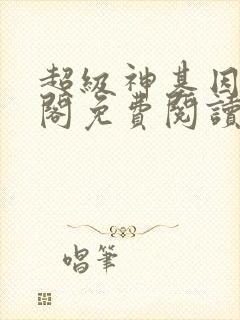 超級神基因
閣免費閱讀
唱筆